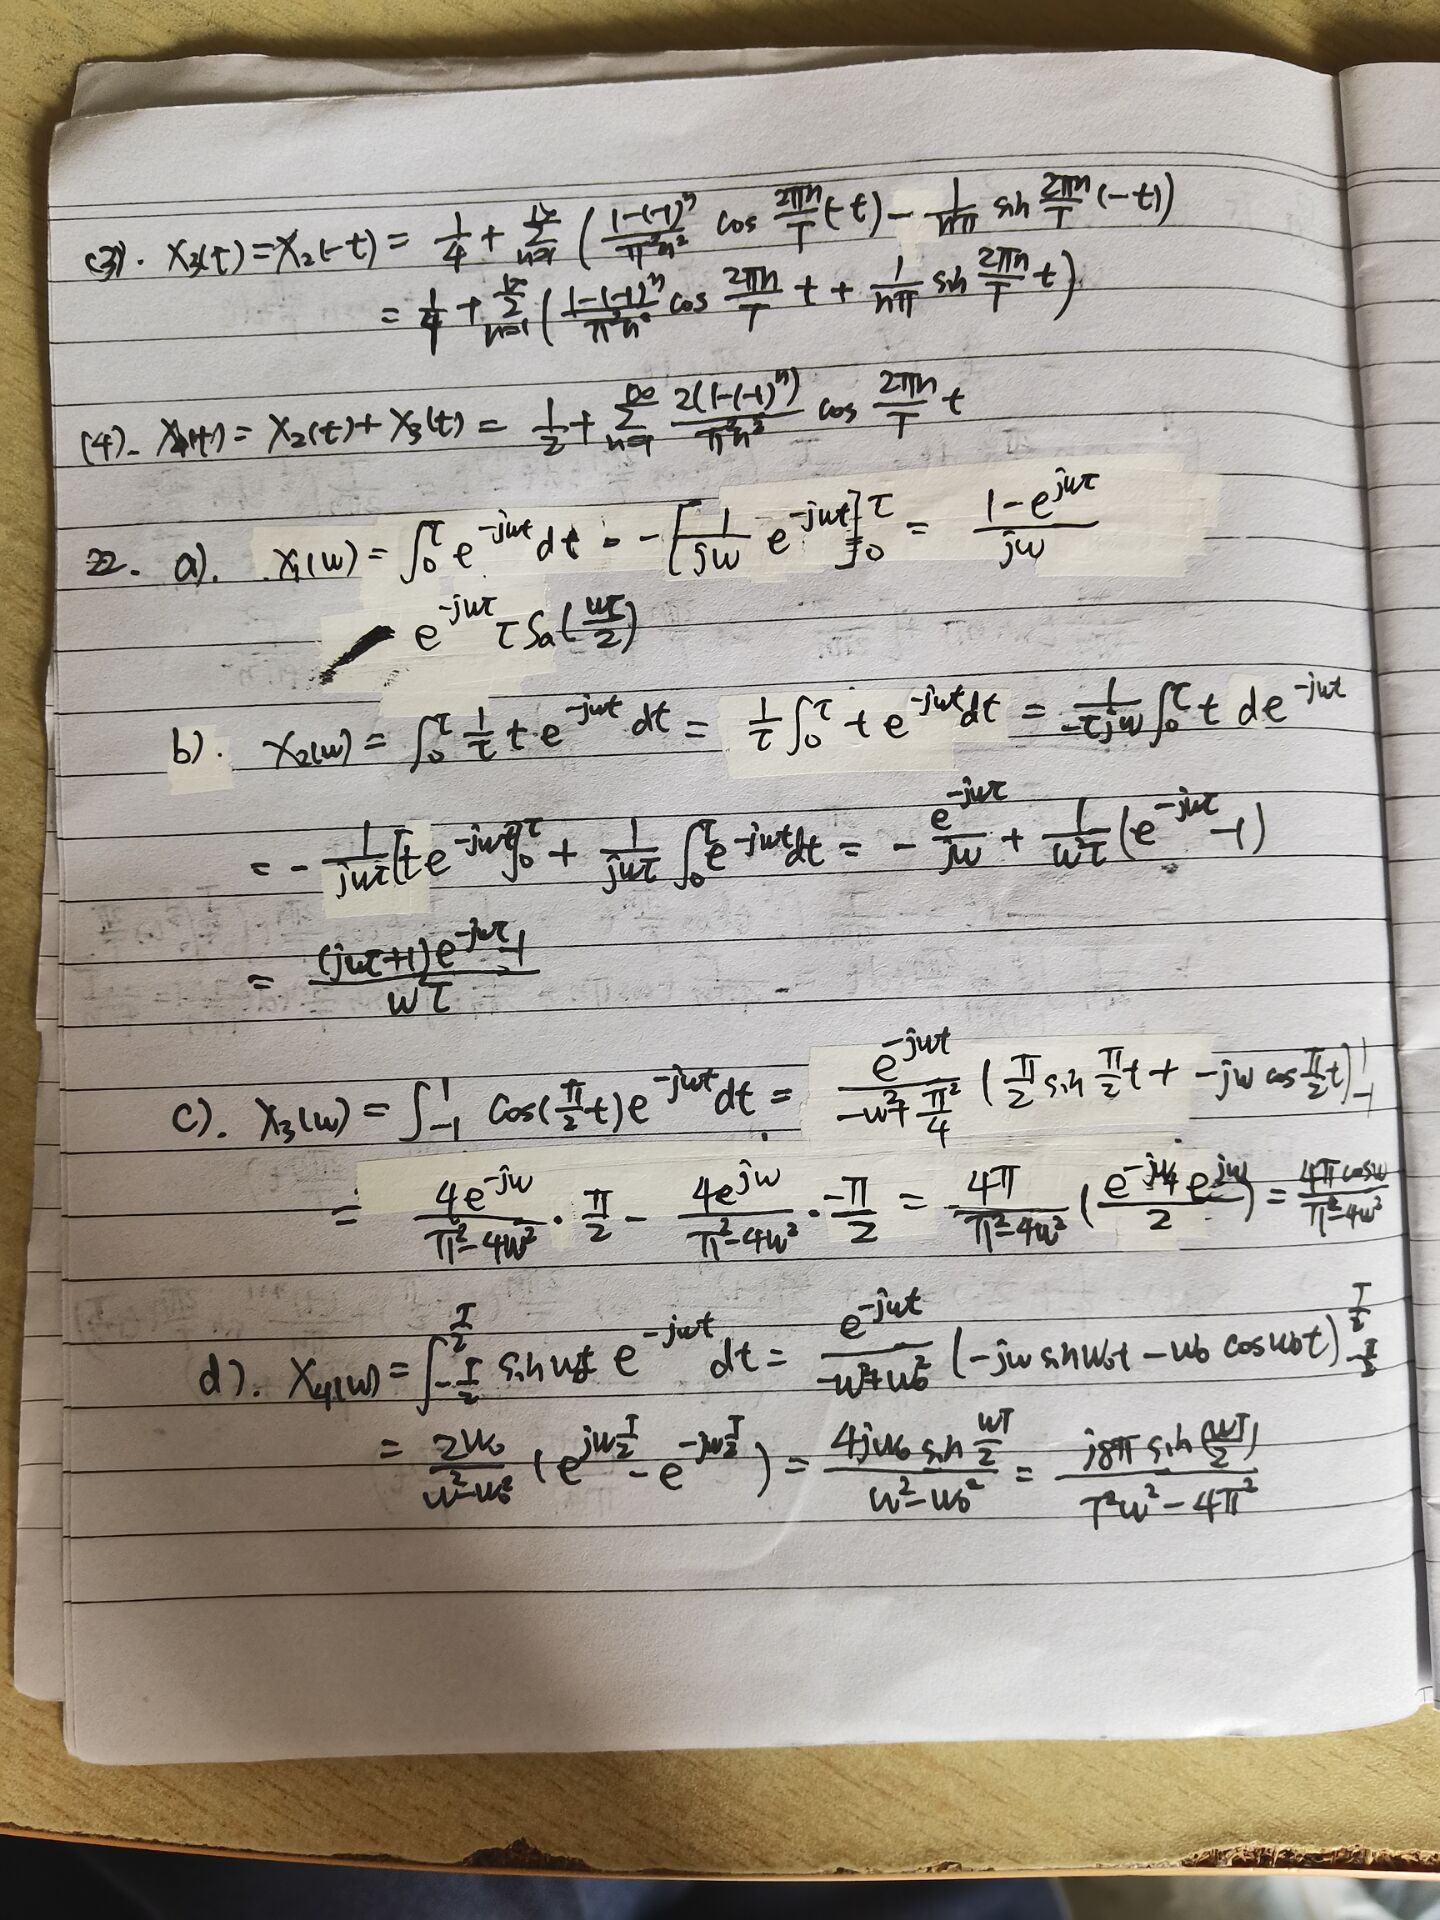 (3). X₃(t)=X₂(-t) = 1/4 + ∑_{n=1}^{∞} ( (1-(-1)ⁿ)/(π²n²) cos 2πn/T (-t) - 1/(nπ) sin 2πn/T (-t) )
= 1/4 + ∑_{n=1}^{∞} ( (1-(-1)ⁿ)/(π²n²) cos 2πn/T t + 1/(nπ) sin 2πn/T t )
(4). X₄(t) = X₂(t) + X₃(t) = 1/2 + ∑_{n=1}^{∞} 2(1-(-1)ⁿ)/(π²n²) cos 2πn/T t
22. a). X₁(w) = ∫₀^τ e^{-jwt} dt = -[1/(jw) e^{-jwt}]₀^τ = (1-e^{jwτ})/(jw)
e^{-jwτ} τ Sa(wτ/2)
b). X₂(w) = ∫₀^τ 1/τ t e^{-jwt} dt = 1/τ ∫₀^τ t e^{-jwt} dt = 1/(-τjw) ∫₀^τ t de^{-jwt}
= - 1/(jwτ) [t e^{-jwt}]₀^τ + 1/(jwτ) ∫₀^τ e^{-jwt} dt = - e^{-jwτ}/(jw) + 1/(w²τ) (e^{-jwτ} -1)
= ((jwτ+1)e^{-jwτ} -1)/(w²τ)
c). X₃(w) = ∫₋₁^1 cos(π/2 t) e^{-jwt} dt = e^{-jwt}/(-w²+π²/4) (π/2 sin π/2 t + -jw cos π/2 t)₋₁^1
= 4e^{-jw}/(π²-4w²) · π/2 - 4e^{jw}/(π²-4w²) · -π/2 = 4π/(π²-4w²) ((e^{-jw}+e^{jw})/2) = 4π cosw/(π²-4w²)
d). X₄(w) = ∫_{-T/2}^{T/2} sin w₀t e^{-jwt} dt = e^{-jwt}/(-w²+w₀²) (-jw sin w₀t - w₀ cos w₀t)_{-T/2}^{T/2}
= 2w₀/(w²-w₀²) (e^{jwT/2} - e^{-jwT/2}) = 4jw₀ sin wT/2 /(w²-w₀²) = j8π sin(wT/2)/(T²w²-4π²)